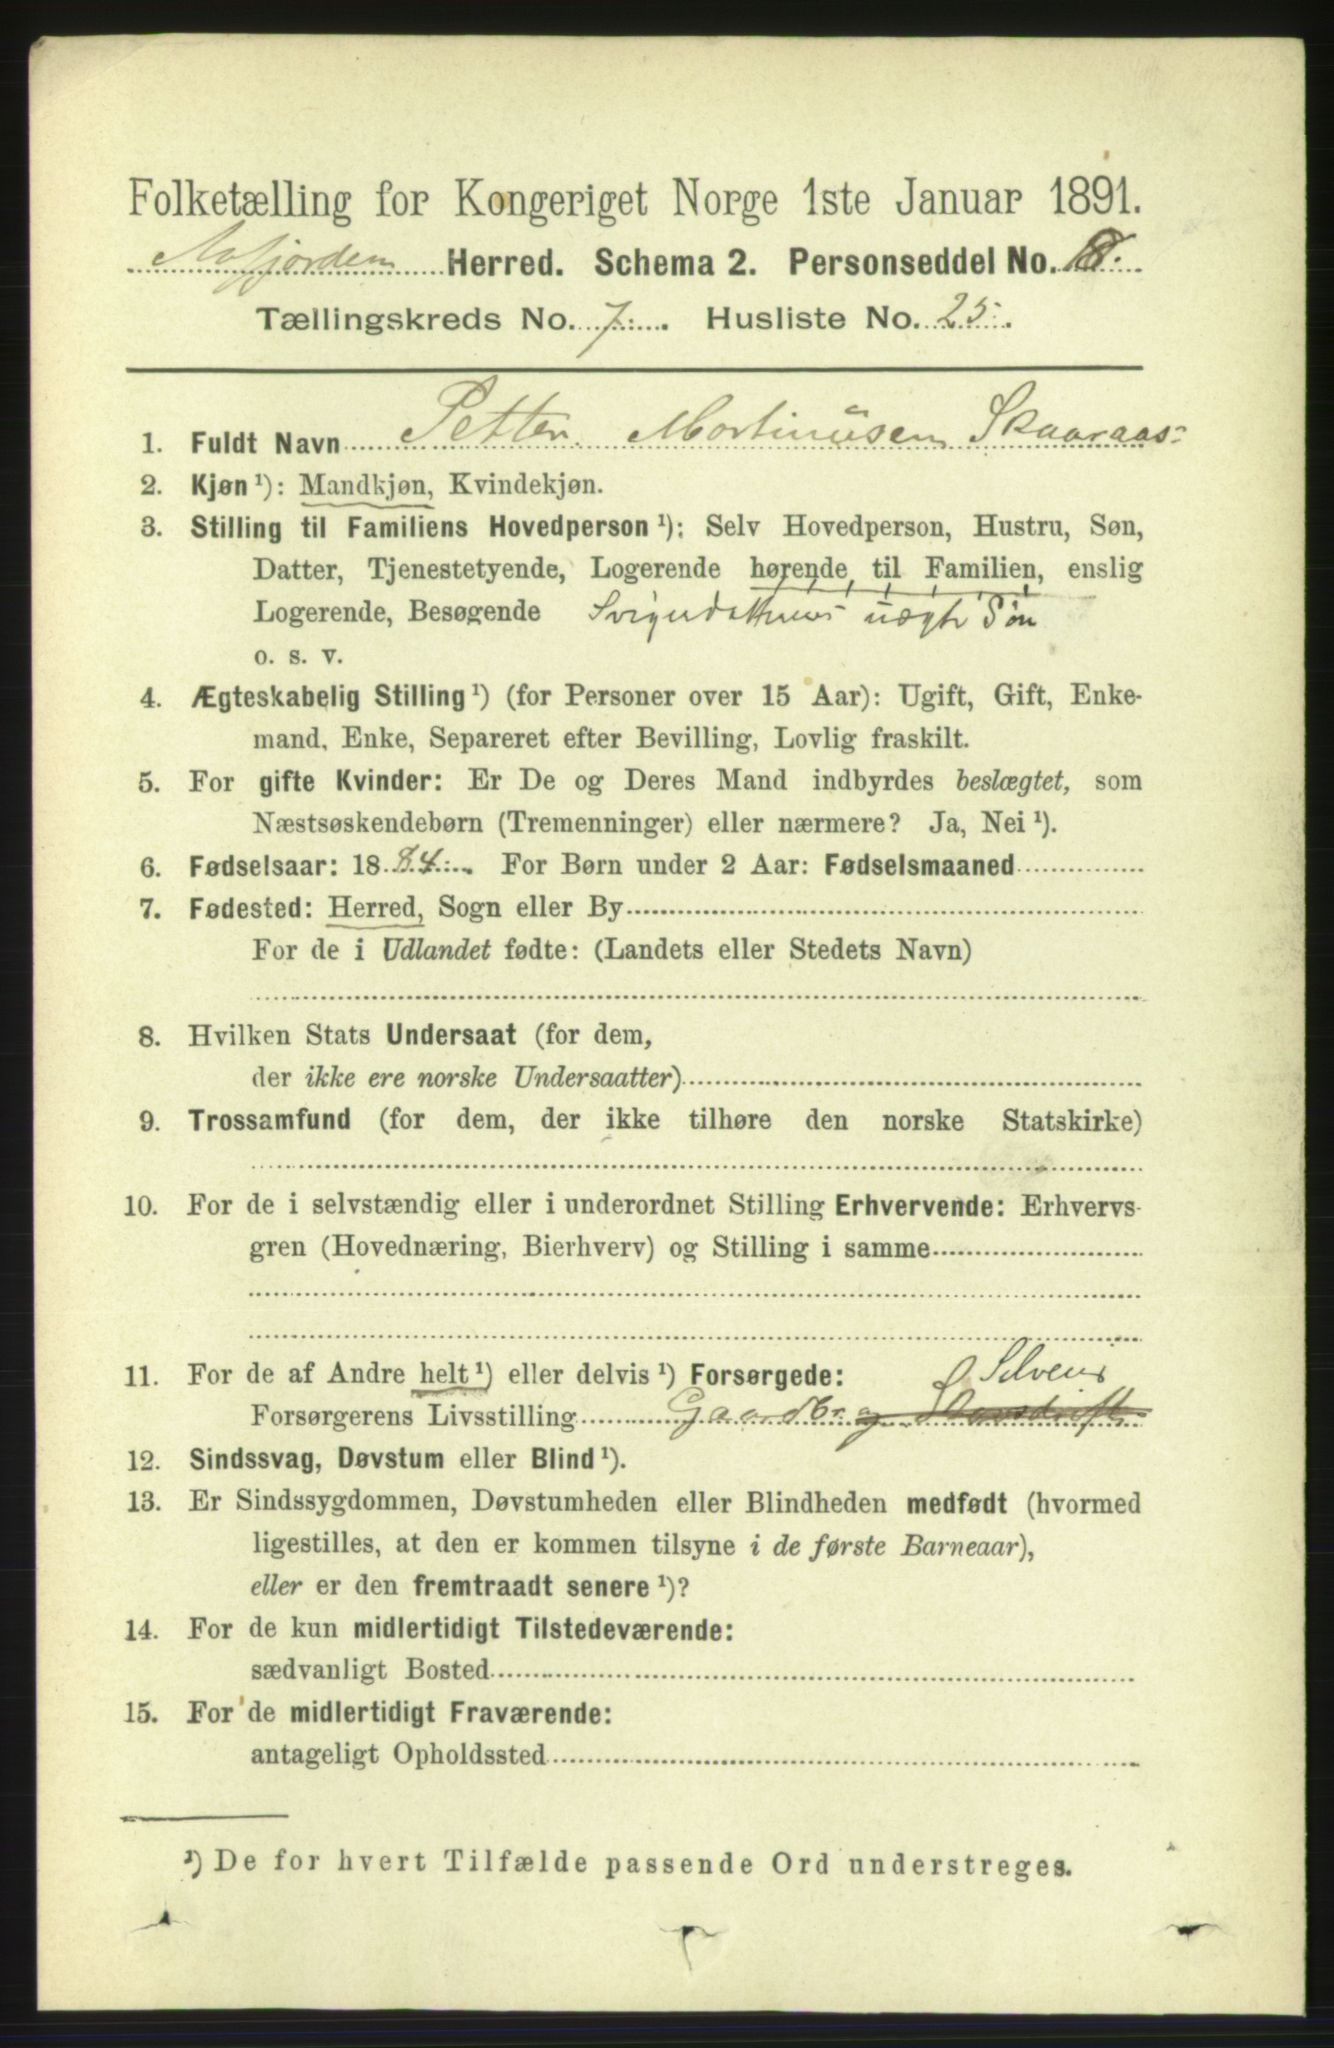 Folketælling for Kongeriget Norge 1ste Januar 1891.
Aafjorden Herred. Schema 2. Personseddel No. 8.
Tællingskreds No. 7. Husliste No. 25.
1. Fuldt Navn Petter Martinusen Skaaraas
2. Kjøn ¹): Mandkjøn, Kvindekjøn.
3. Stilling til Familiens Hovedperson ¹): Selv Hovedperson, Hustru, Søn,
Datter, Tjenestetyende, Logerende hørende til Familien, enslig
Logerende, Besøgende Svigerdatterens uægte Søn
o. s. v.
4. Ægteskabelig Stilling ¹) (for Personer over 15 Aar): Ugift, Gift, Enke-
mand, Enke, Separeret efter Bevilling, Lovlig fraskilt.
5. For gifte Kvinder: Er De og Deres Mand indbyrdes beslægtet, som
Næstsøskendebørn (Tremenninger) eller nærmere? Ja, Nei ¹).
6. Fødselsaar: 1884. For Børn under 2 Aar: Fødselsmaaned
7. Fødested: Herred, Sogn eller By
For de i Udlandet fødte: (Landets eller Stedets Navn)
8. Hvilken Stats Undersaat (for dem,
der ikke ere norske Undersaatter)
9. Trossamfund (for dem, der ikke tilhøre den norske Statskirke)
10. For de i selvstændig eller i underordnet Stilling Erhvervende: Erhvervs-
gren (Hovednæring, Bierhverv) og Stilling i samme
11. For de af Andre helt ¹) eller delvis ¹) Forsørgede: Selveier
Forsørgerens Livsstilling Gaardbr. og
12. Sindssvag, Døvstum eller Blind ¹).
13. Er Sindssygdommen, Døvstumheden eller Blindheden medfødt (hvormed
ligestilles, at den er kommen tilsyne i de første Barneaar),
eller er den fremtraadt senere ¹)?
14. For de kun midlertidigt Tilstedeværende:
sædvanligt Bosted
15. For de midlertidigt Fraværende:
antageligt Opholdssted
¹) De for hvert Tilfælde passende Ord understreges.